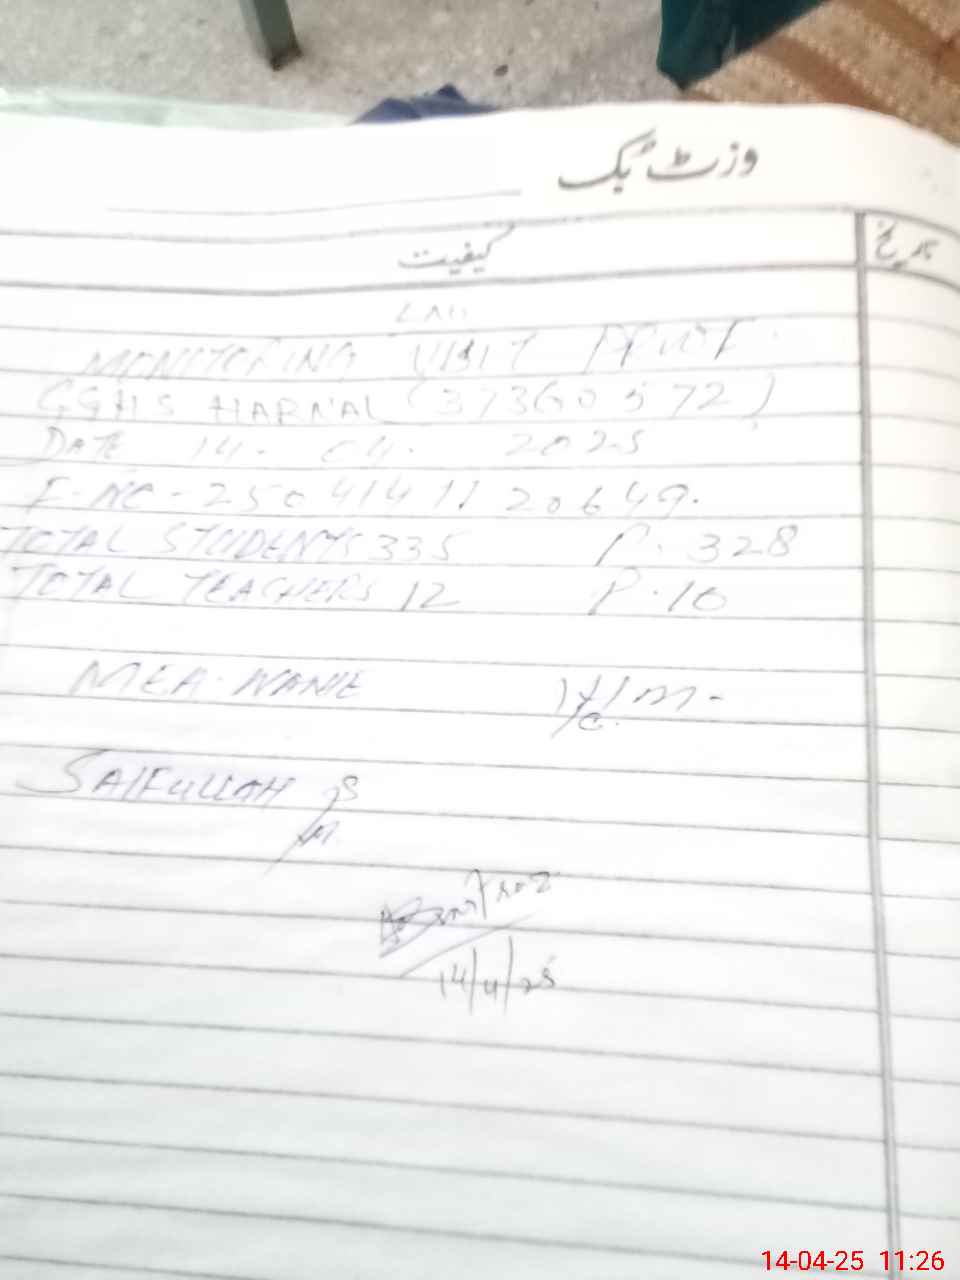 وزٹ بک
کیفیت تاریخ
MONITORING VISIT PROOF.
GGHS HARNAL (37360572)
DATE 14. 04. 2025
F. NO - 2504141120649.
TOTAL STUDENTS 335 P. 328
TOTAL TEACHERS 12 P. 10
MEA. NAME
SAIFULLAH
14/4/25
14-04-25 11:26